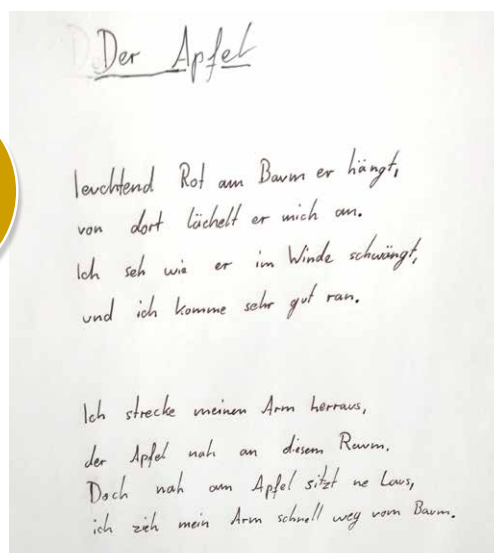 Der Apfel
leuchtend Rot am Baum er hängt,
von dort lächelt er mich an.
Ich seh wie er im Winde schwängt,
und ich komme sehr gut ran.
Ich strecke meinen Arm herraus,
der Apfel nah an diesem Raum.
Doch nah am Apfel sitzt ne Laus,
ich zieh mein Arm schnell weg vom Baum.